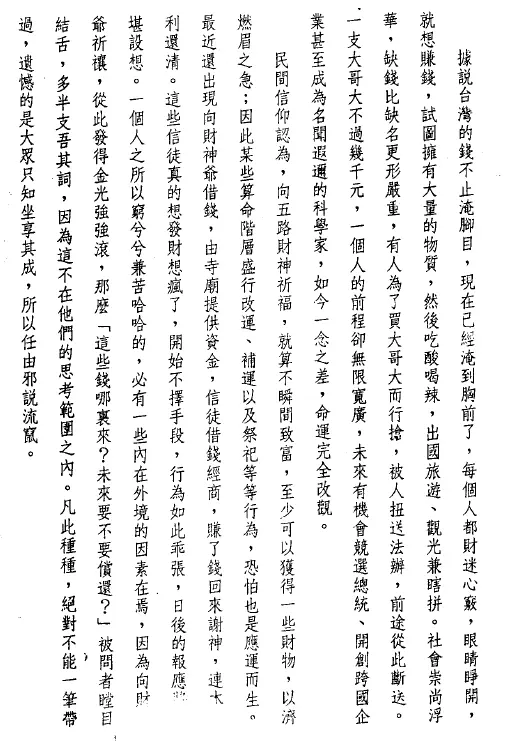 據說台灣的錢不止淹腳目，現在已經淹到胸前了，每個人都財迷心竅，眼睛睜開，
就想賺錢，試圖擁有大量的物質，然後吃酸喝辣，出國旅遊、觀光兼瞎拼。社會崇尚浮
華，缺錢比缺名更形嚴重，有人為了買大哥大而行搶，被人扭送法辦，前途從此斷送。
一支大哥大不過幾千元，一個人的前程卻無限寬廣，未來有機會競選總統、開創跨國企
業甚至成為名聞遐邇的科學家，如今一念之差，命運完全改觀。
民間信仰認為，向五路財神祈福，就算不瞬間致富，至少可以獲得一些財物，以濟
燃眉之急；因此某些算命階層盛行改運、補運以及祭祀等等行為，恐怕也是應運而生。
最近還出現向財神爺借錢，由寺廟提供資金，信徒借錢經商，賺了錢回來謝神，連本
利還清。這些信徒真的想發財想瘋了，開始不擇手段，行為如此乖張，日後的報應
堪設想。一個人之所以窮兮兮兼苦哈哈的，必有一些內在外境的因素在焉，因為向財
爺祈禳，從此發得金光強強滾，那麼「這些錢哪裏來？未來要不要償還？」被問者瞠目
結舌，多半支吾其詞，因為這不在他們的思考範圍之內。凡此種種，絕對不能一筆帶
過，遺憾的是大眾只知坐享其成，所以任由邪說流竄。